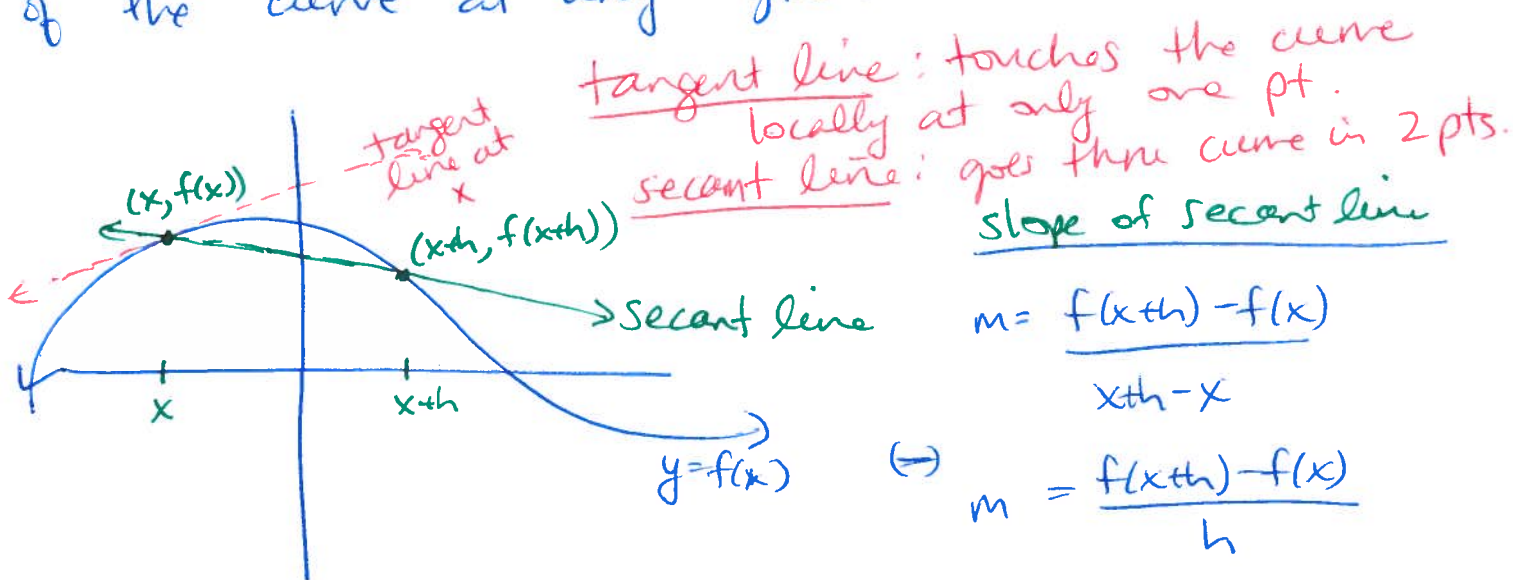 of the curve at any
tangent line: touches the curve
locally at only one pt.
secant line: goes thru curve in 2 pts.
tangent
line at
x
(x, f(x))
(x+h, f(x+h))
secant line
x
x+h
y=f(x)
slope of secant line
m= f(x+h) - f(x)
x+h - x
(-)
m = f(x+h) - f(x)
h